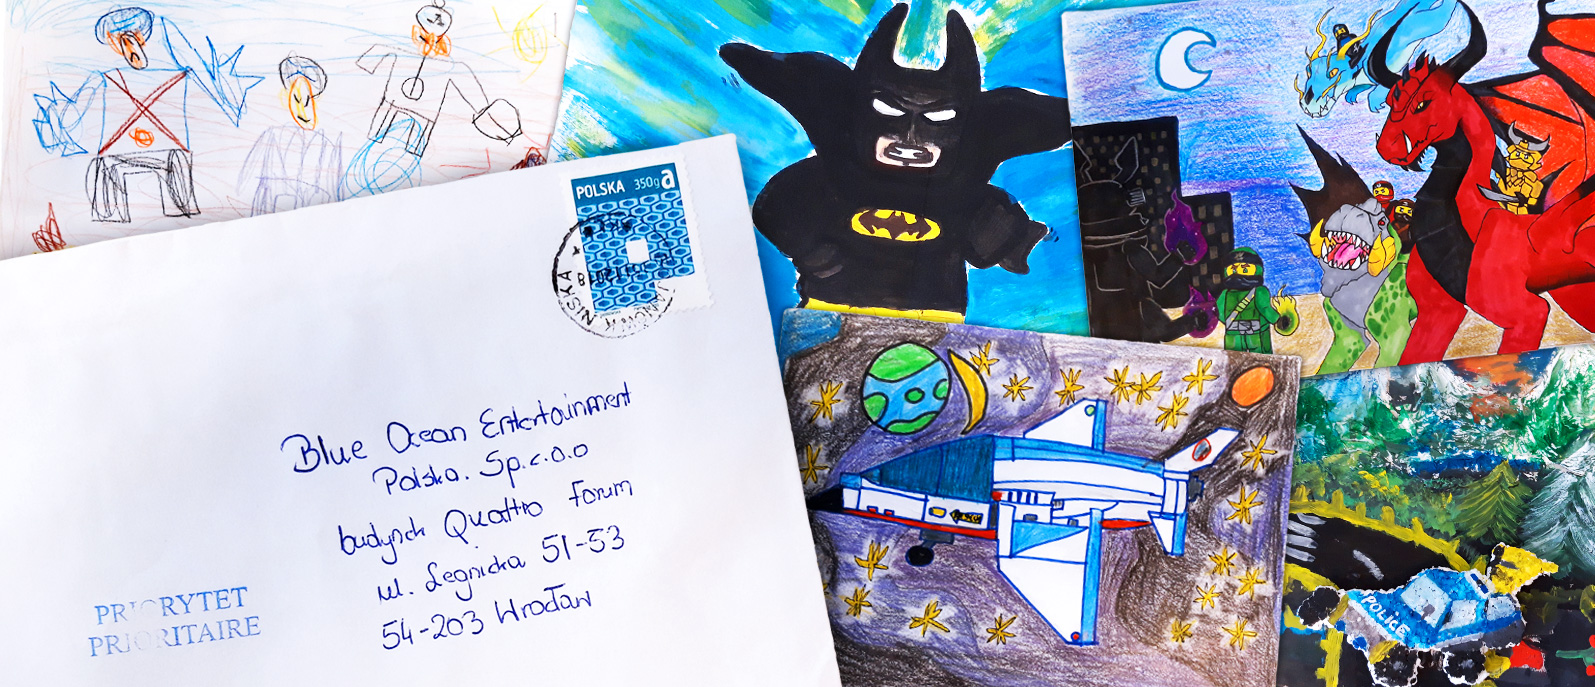 POLSKA 350g a
Blue Ocean Entertainment
Polska. Sp.z.o.o
budynek Quattro Forum
ul. Legnicka 51-53
54-203 Wrocław
PRIORYTET
PRIORITAIRE
POLICE